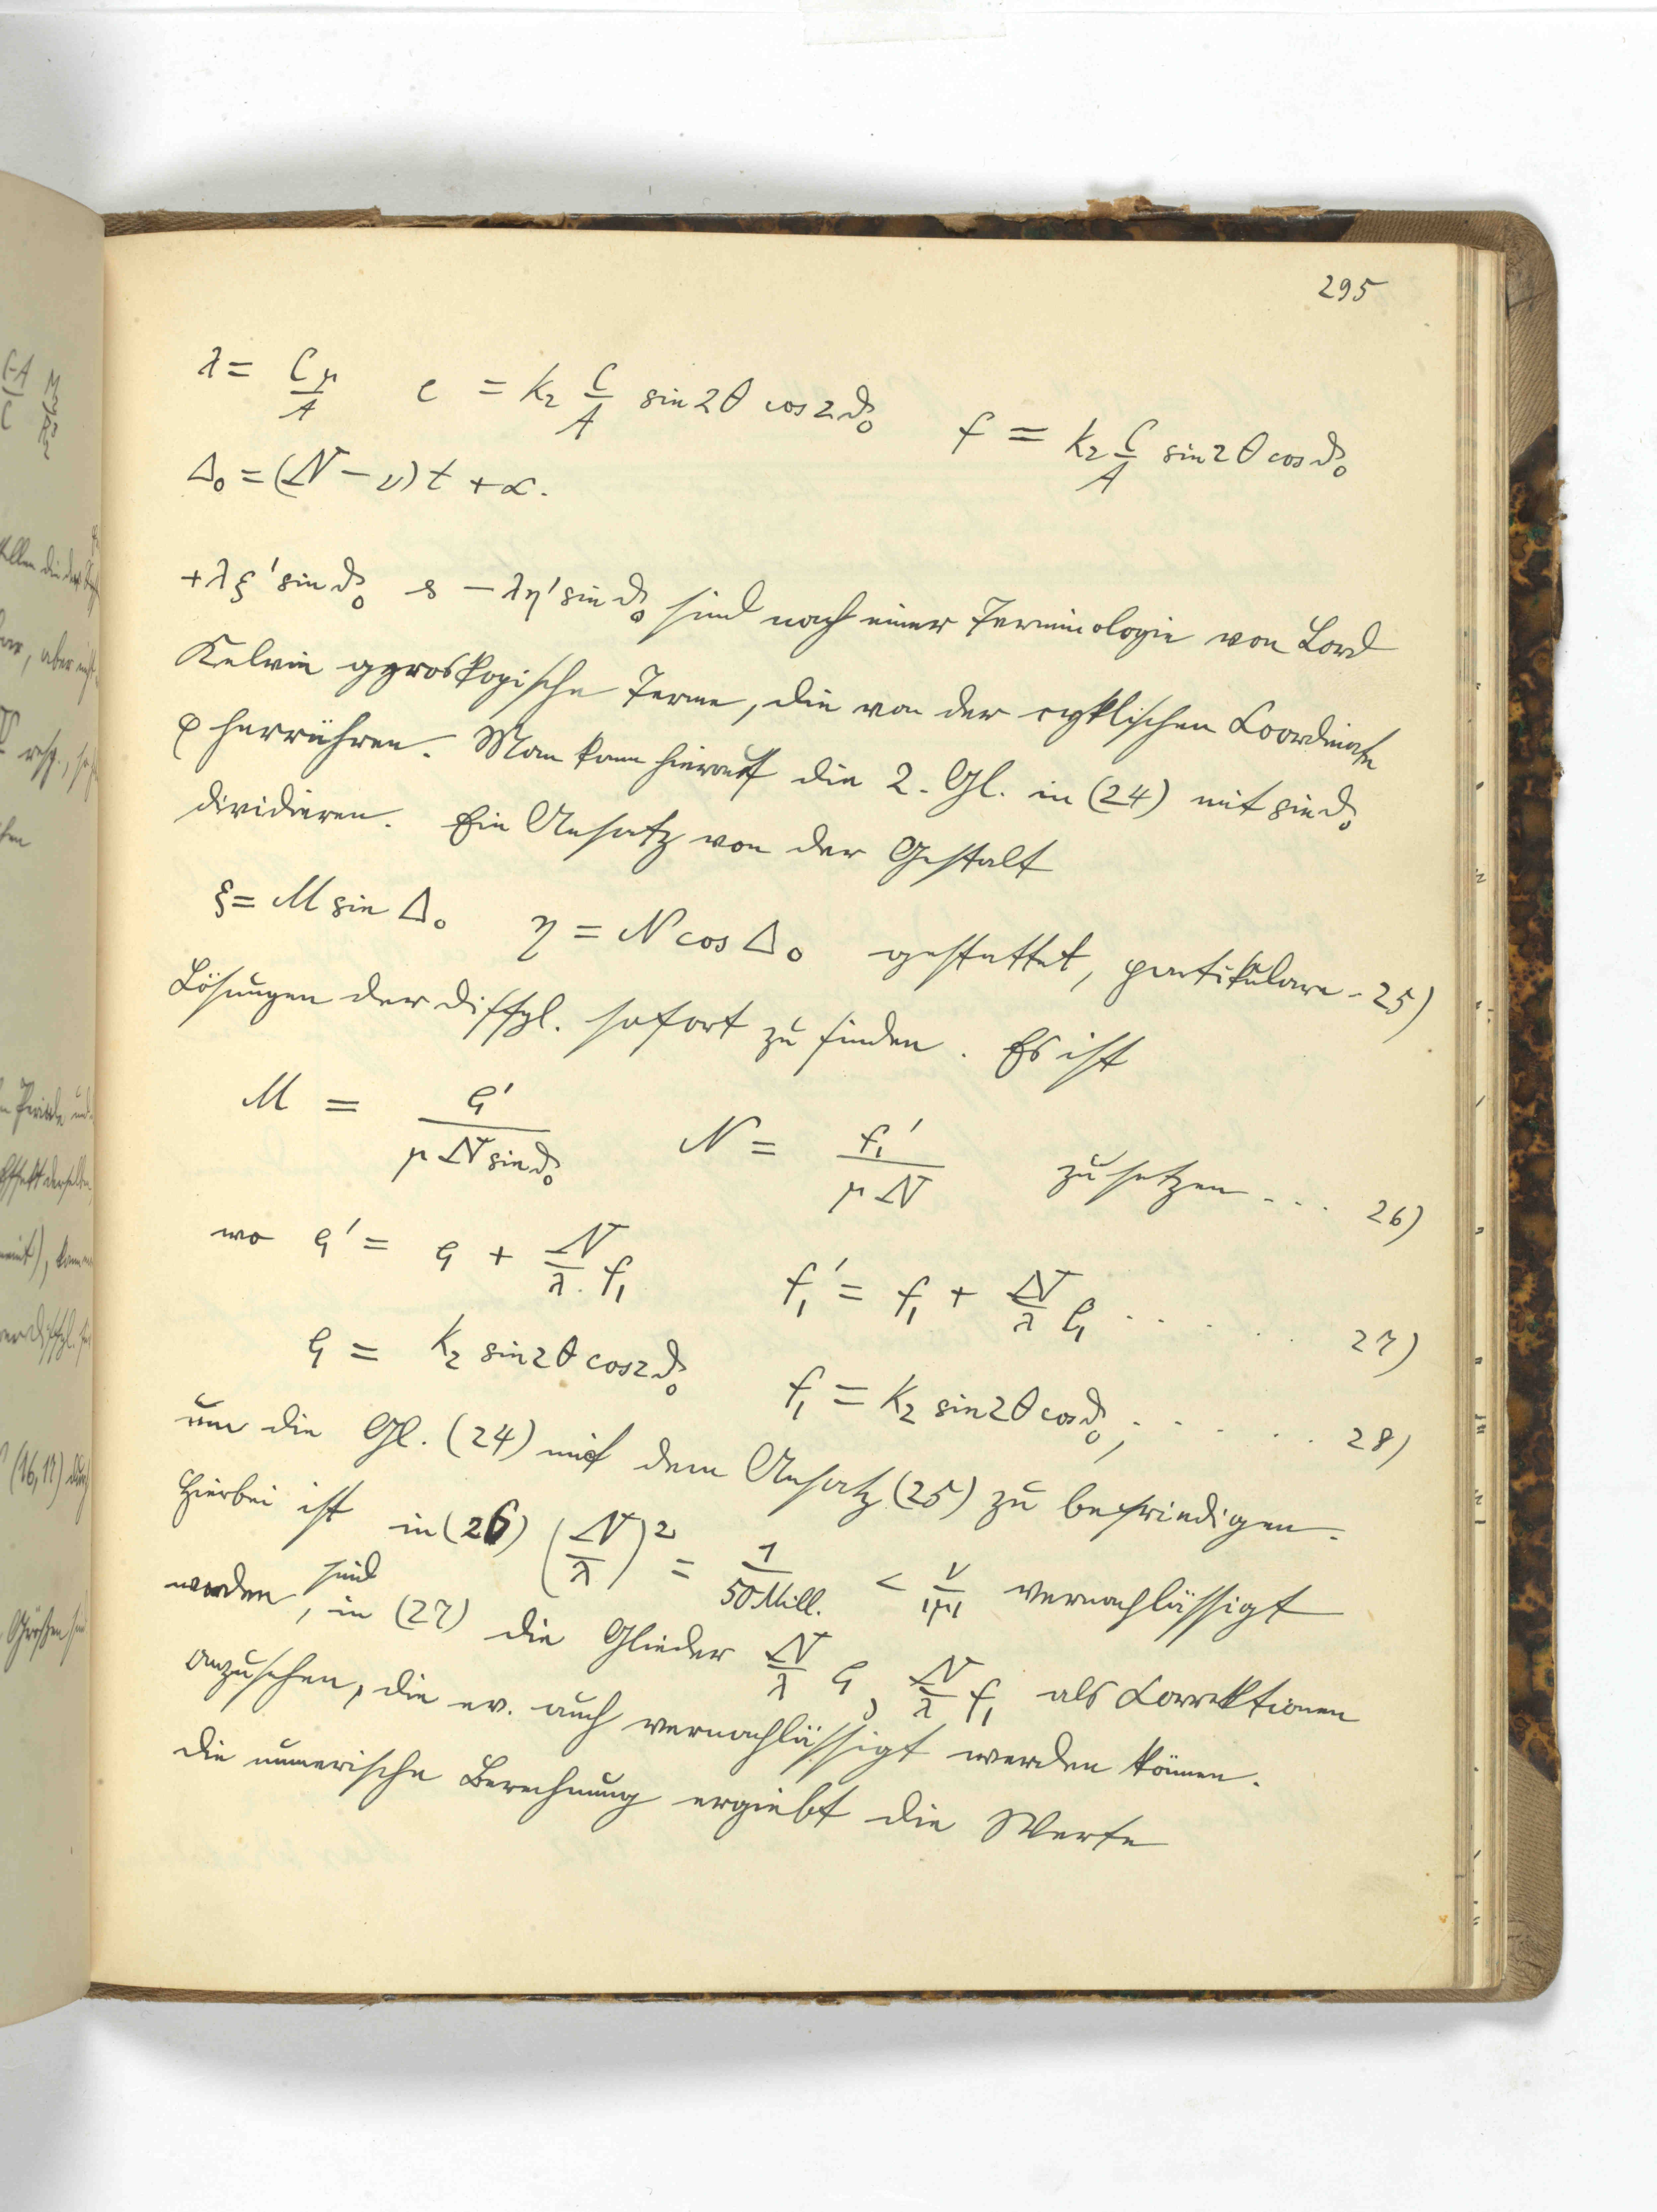 295
λ = Cμ/A   e = k₂ C/A sin 2θ cos 2ϑ₀   f = k₂ C/A sin 2θ cos ϑ₀
Δ₀ = (N − ν) t + α.
+λξ' sin ϑ₀ & −λη' sin ϑ₀ sind nach einer Terminologie von Lord
Kelvin gyroskopische Terme, die von der cyklischen Coordinate
φ herrühren. Man kann hierauf die 2. Gl. in (24) mit sin ϑ₀
dividieren. Ein Ansatz von der Gestalt
ξ = M sin Δ₀   η = N cos Δ₀ gestattet, partikulare - 25)
Lösungen der Diffgl. sofort zu finden. Es ist
M = e₁'/(μ N sin ϑ₀)   N = f₁'/(μ N)   zu setzen ... 26)
wo e₁' = e₁ + N/λ · f₁   f₁' = f₁ + N/λ e₁ ...... 27)
e₁ = k₂ sin 2θ cos 2ϑ₀   f₁ = k₂ sin 2θ cos ϑ₀; .... 28)
um die Gl. (24) mit dem Ansatz (25) zu befriedigen.
Hierbei ist in (26) (N/λ)² = 1/50 Mill. < ν/|μ| vernachlässigt
worden, sind in (27) die Glieder N/λ e₁, N/λ f₁ als Correktionen
anzusehen, die ev. auch vernachlässigt werden können.
Die numerische Berechnung ergiebt die Werte